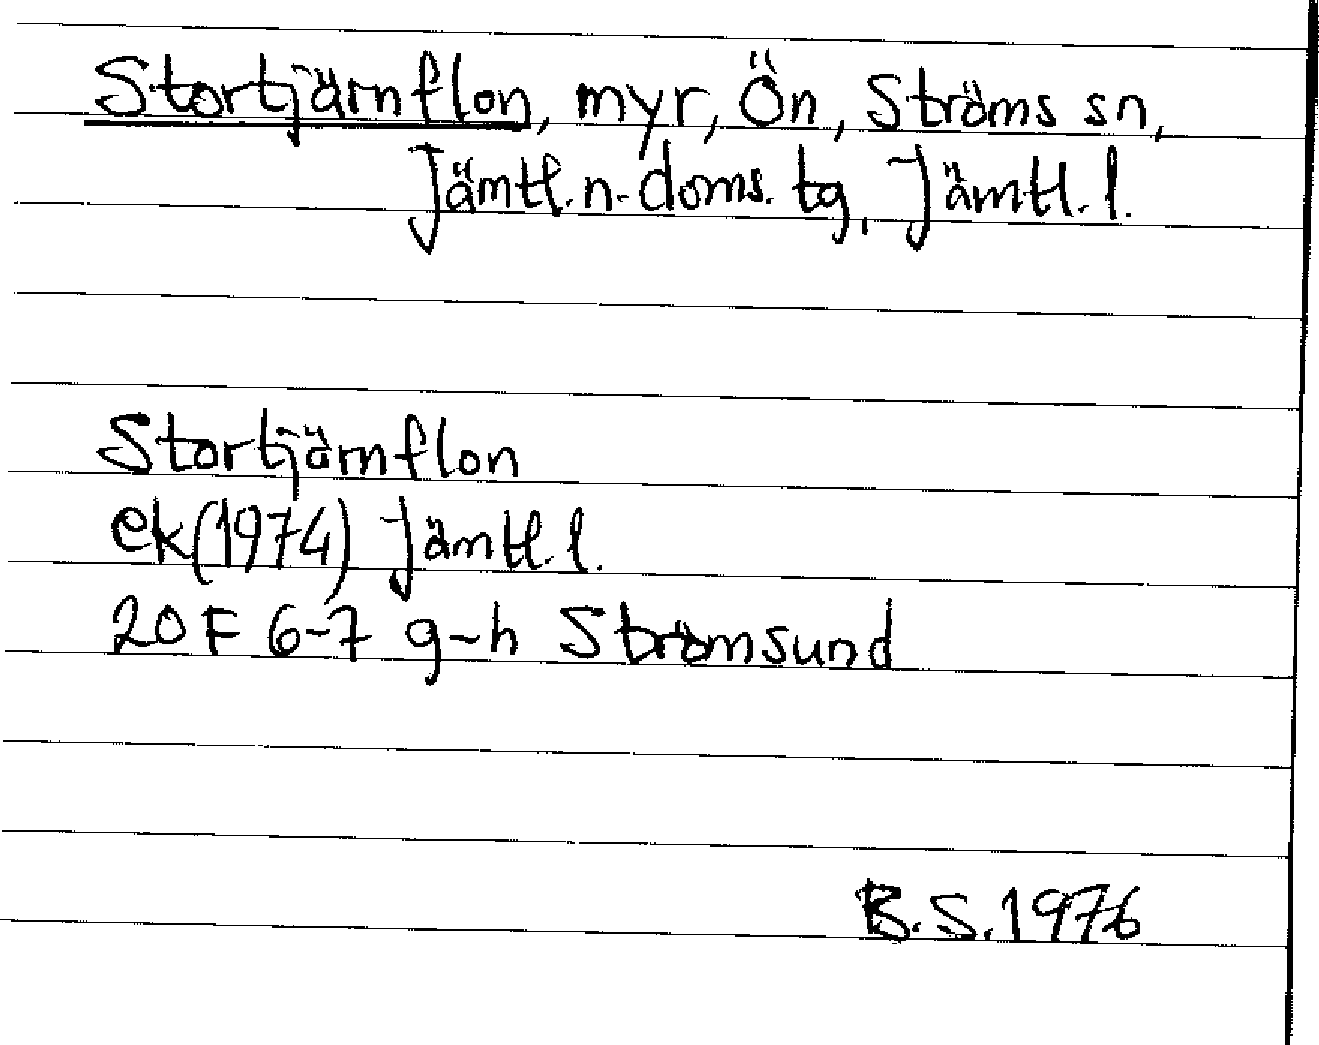 Stortjärnflon, myr, Ön, Ströms sn,
Jämtl. n. doms. tg, Jämtl. l.
Stortjärnflon
ek (1974) Jämtl. l.
20 F 6-7 g-h Strömsund
B.S. 1976